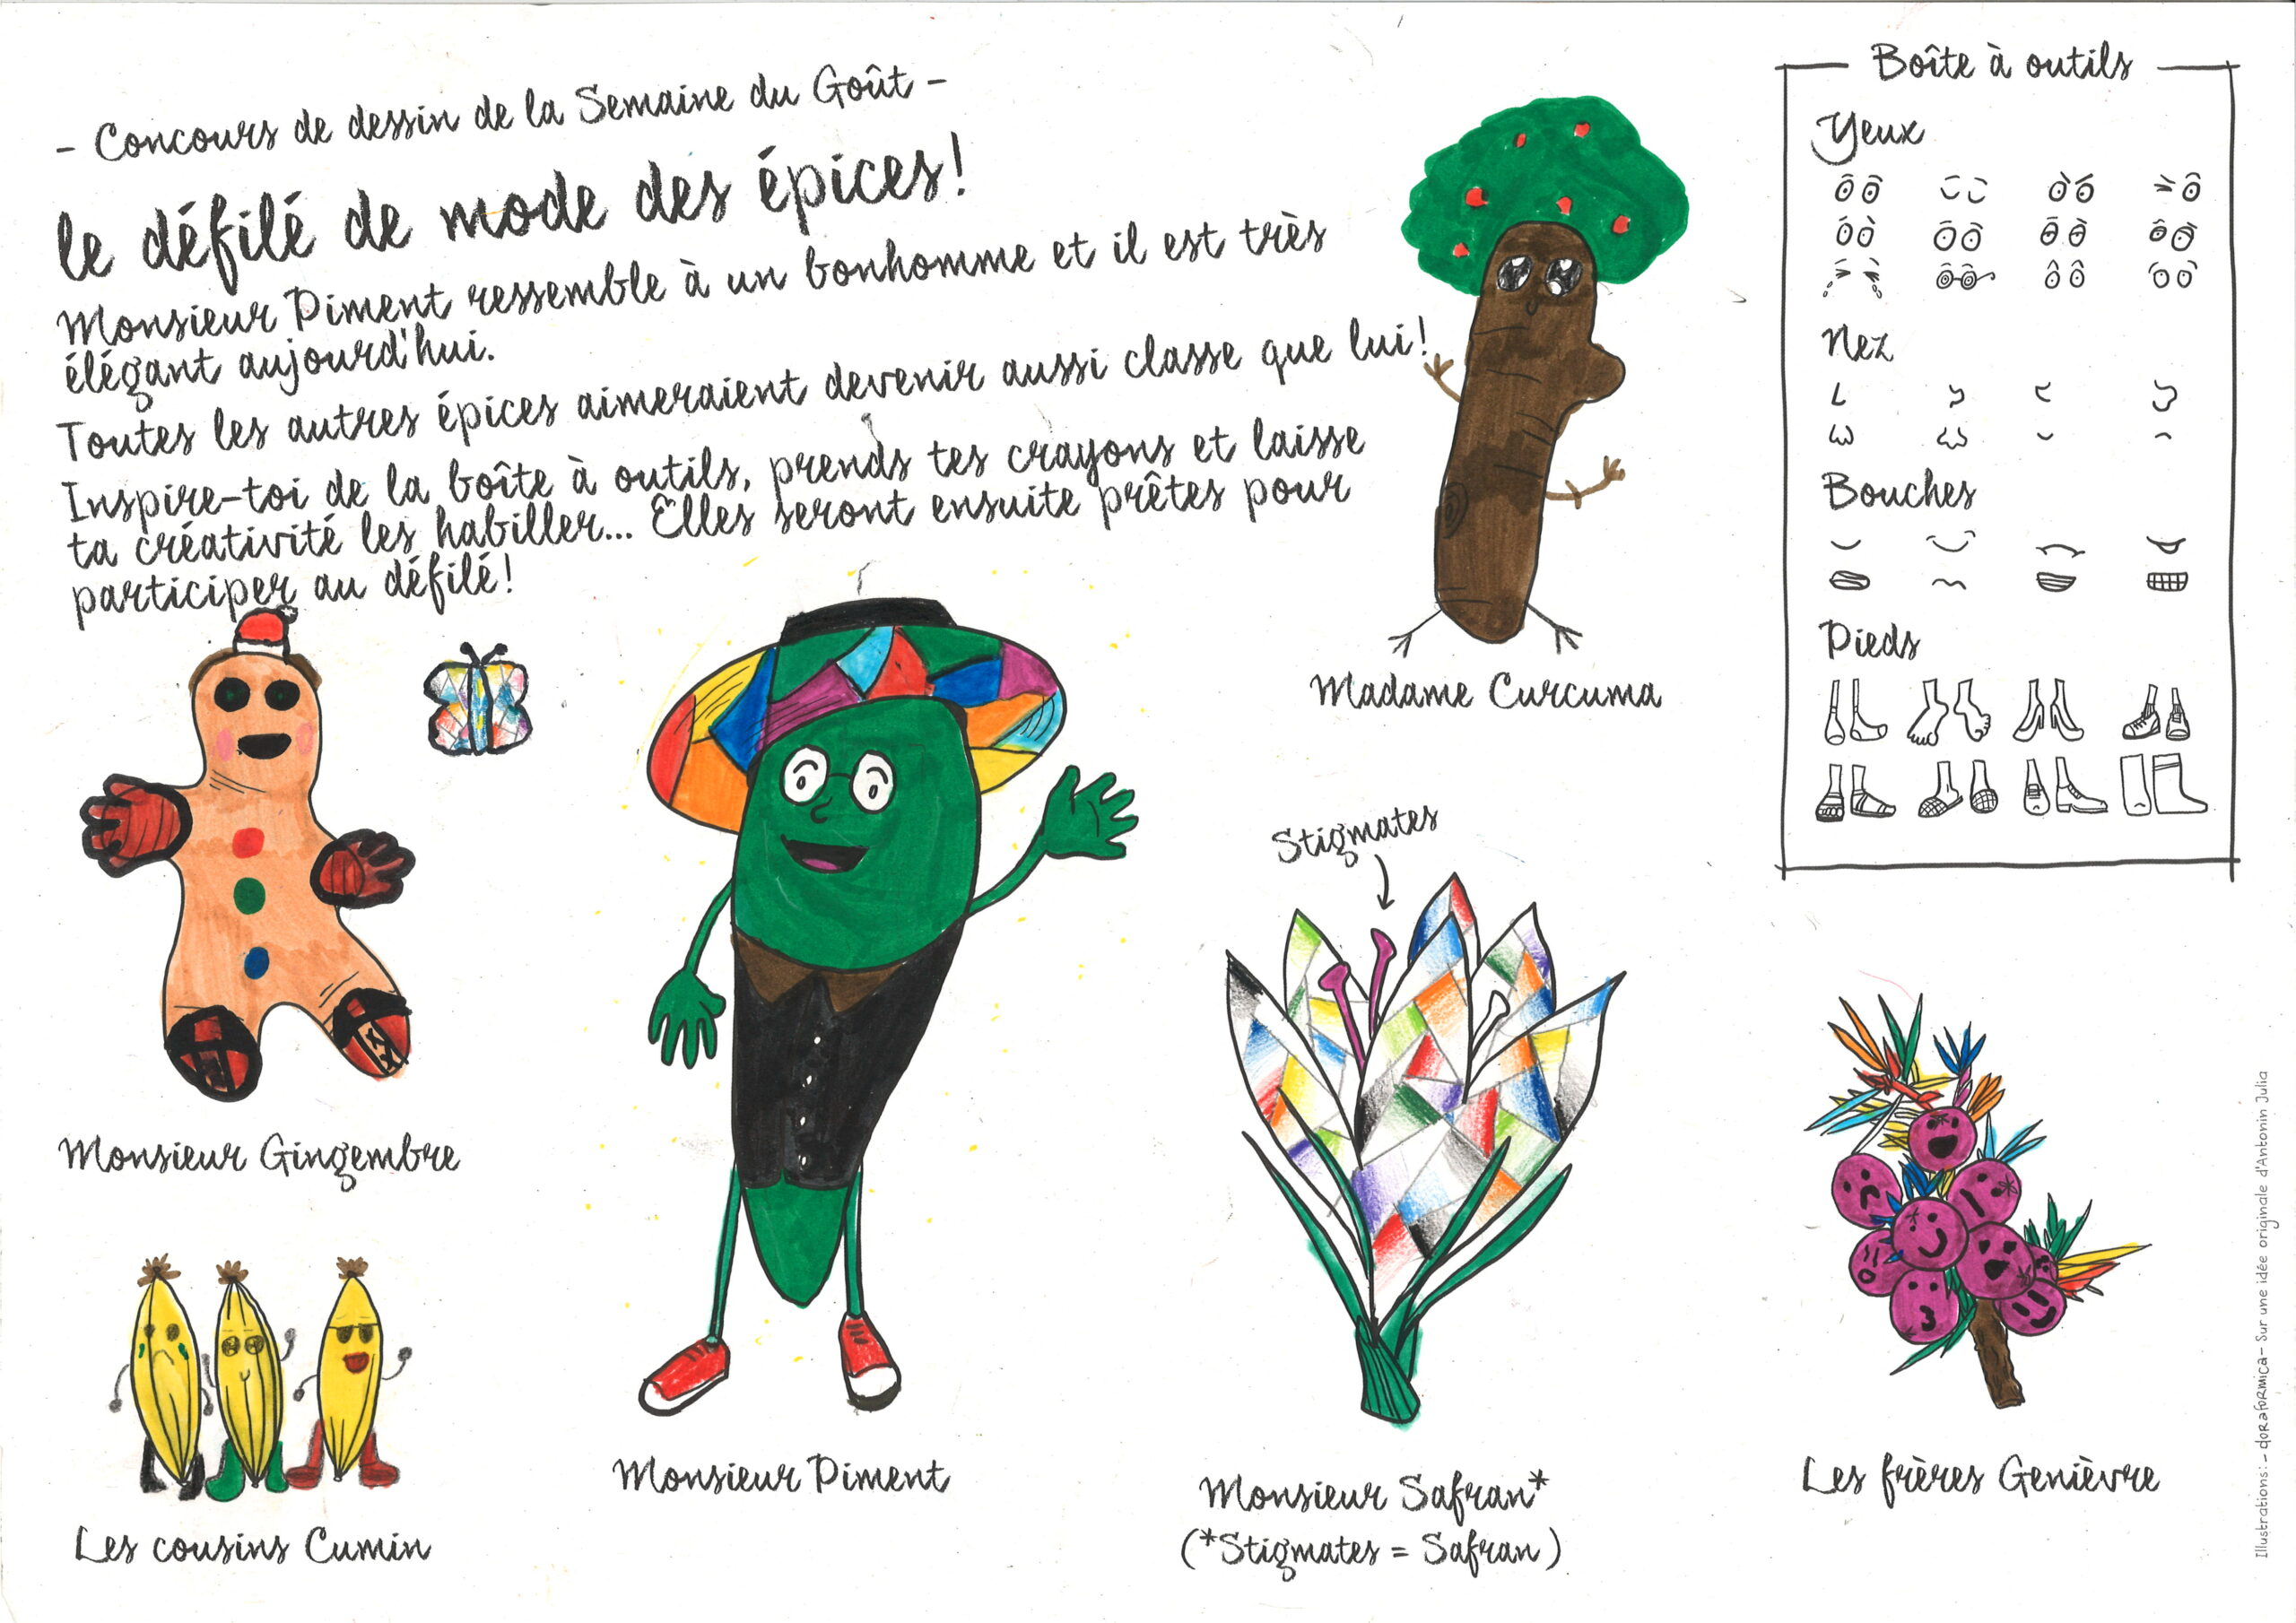 - Concours de dessin de la Semaine du Goût -
le défilé de mode des épices!
Monsieur Piment ressemble à un bonhomme et il est très
élégant aujourd'hui.
Toutes les autres épices aimeraient devenir aussi classe que lui!
Inspire-toi de la boîte à outils, prends tes crayons et laisse
ta créativité les habiller... Elles seront ensuite prêtes pour
participer au défilé!
Boîte à outils
Yeux
Nez
Bouches
Pieds
Madame Curcuma
Stigmates
Monsieur Gingembre
Les cousins Cumin
Monsieur Piment
Monsieur Safran*
(*Stigmates = Safran)
Les frères Genièvre
Illustrations: - doraformica - Sur une idée originale d'Antonin Julia